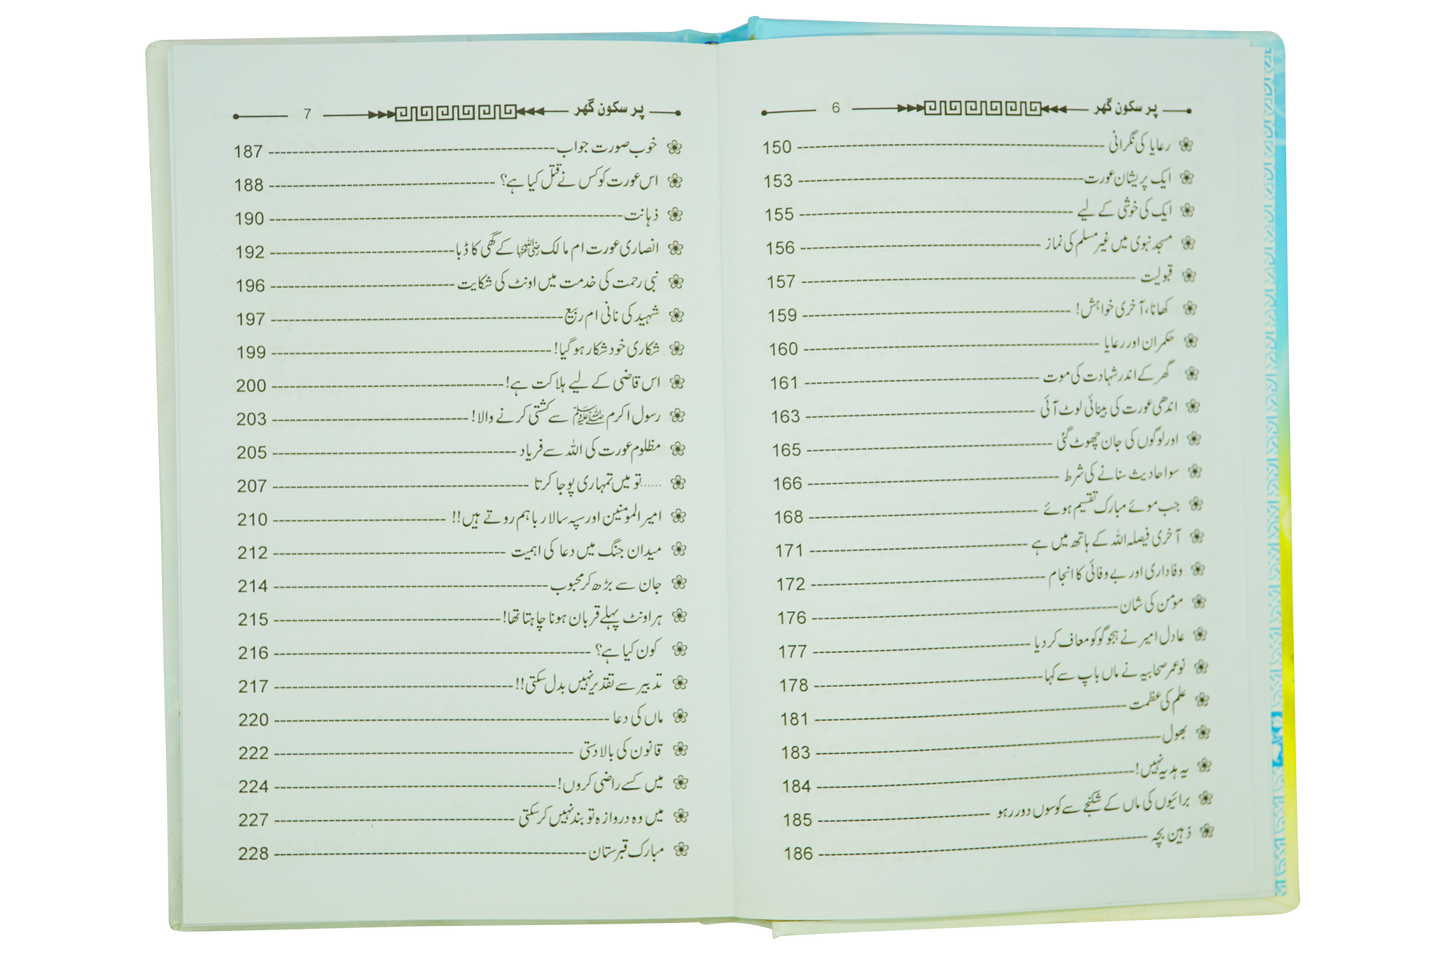 پر سکون گھر 6
رعایا کی نگرانی 150
ایک پریشان عورت 153
ایک کی خوشی کے لیے 155
مسجد نبوی میں غیر مسلم کی نماز 156
قبولیت 157
کھانا، آخری خواہش! 159
حکمران اور رعایا 160
گھر کے اندر شہادت کی موت 161
اندھی عورت کی بینائی لوٹ آئی 163
اور لوگوں کی جان چھوٹ گئی 165
سو احادیث سنانے کی شرط 166
جب موئے مبارک تقسیم ہوئے 168
آخری فیصلہ اللہ کے ہاتھ میں ہے 171
وفاداری اور بے وفائی کا انجام 172
مومن کی شان 176
عادل امیر نے ہجو گو کو معاف کر دیا 177
نو عمر صحابیہ نے ماں باپ سے کہا 178
علم کی عظمت 181
بھول 183
یہ ہدیہ نہیں! 184
برائیوں کی ماں کے شکنجے سے کوسوں دور رہو 185
ذہین بچہ 186
پر سکون گھر 7
خوب صورت جواب 187
اس عورت کو کس نے قتل کیا ہے؟ 188
ذہانت 190
انصاری عورت ام مالک رضی اللہ عنہا کے گھی کا ڈبا 192
نبی رحمت کی خدمت میں اونٹ کی شکایت 196
شہید کی نانی ام ربیع 197
شکاری خود شکار ہو گیا! 199
اس قاضی کے لیے ہلاکت ہے! 200
رسول اکرم ﷺ سے کشتی کرنے والا! 203
مظلوم عورت کی اللہ سے فریاد 205
.....تو میں تمہاری پوجا کرتا 207
امیر المومنین اور سپہ سالار باہم روتے ہیں!! 210
میدان جنگ میں دعا کی اہمیت 212
جان سے بڑھ کر محبوب 214
ہر اونٹ پہلے قربان ہونا چاہتا تھا! 215
کون کیا ہے؟ 216
تدبیر سے تقدیر نہیں بدل سکتی!! 217
ماں کی دعا 220
قانون کی بالا دستی 222
میں کسے راضی کروں! 224
میں وہ دروازہ تو بند نہیں کر سکتی 227
مبارک قبرستان 228